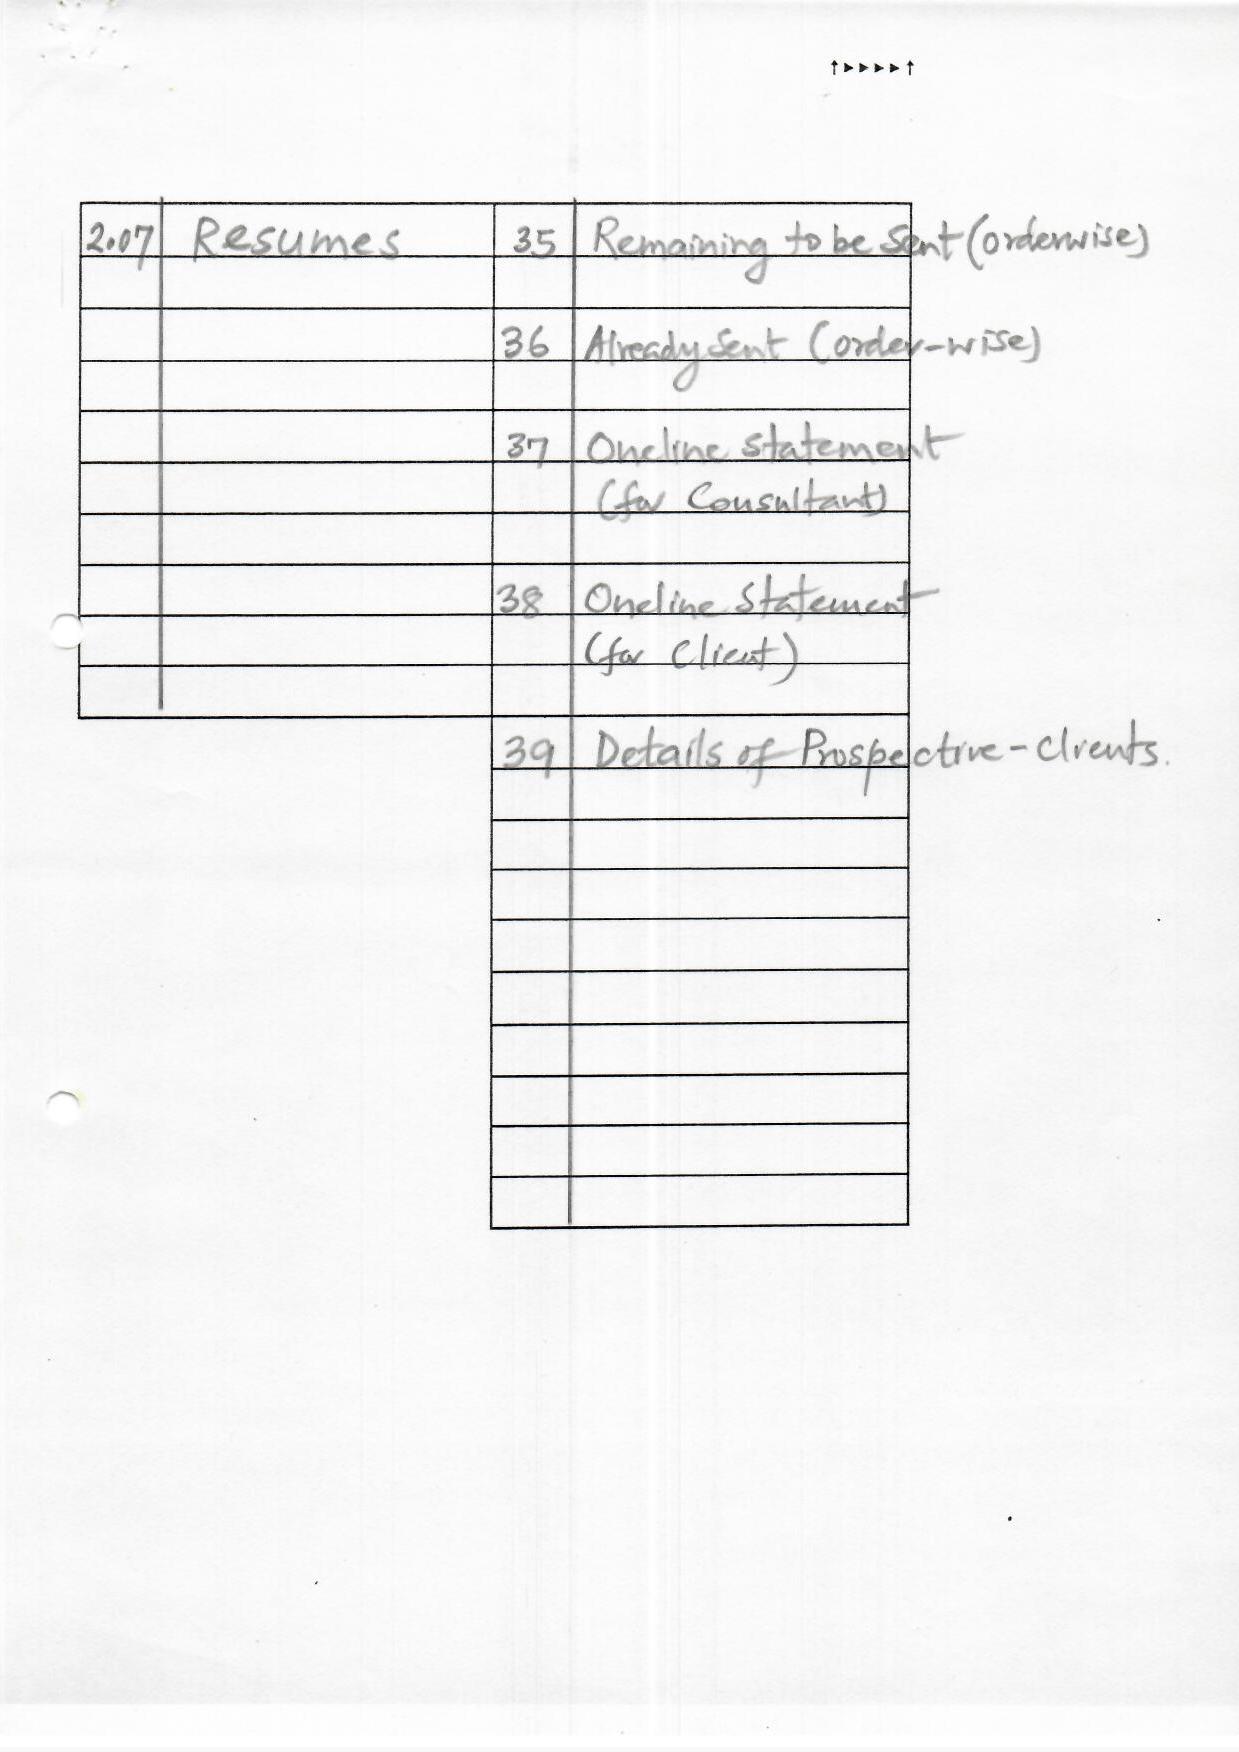 ↑►►►►↑
2.07 Resumes 35 Remaining to be sent (orderwise)
36 Already sent (order-wise)
37 Oneline statement
(for Consultant)
38 Oneline Statement
(for Client)
39 Details of Prospective-clients.